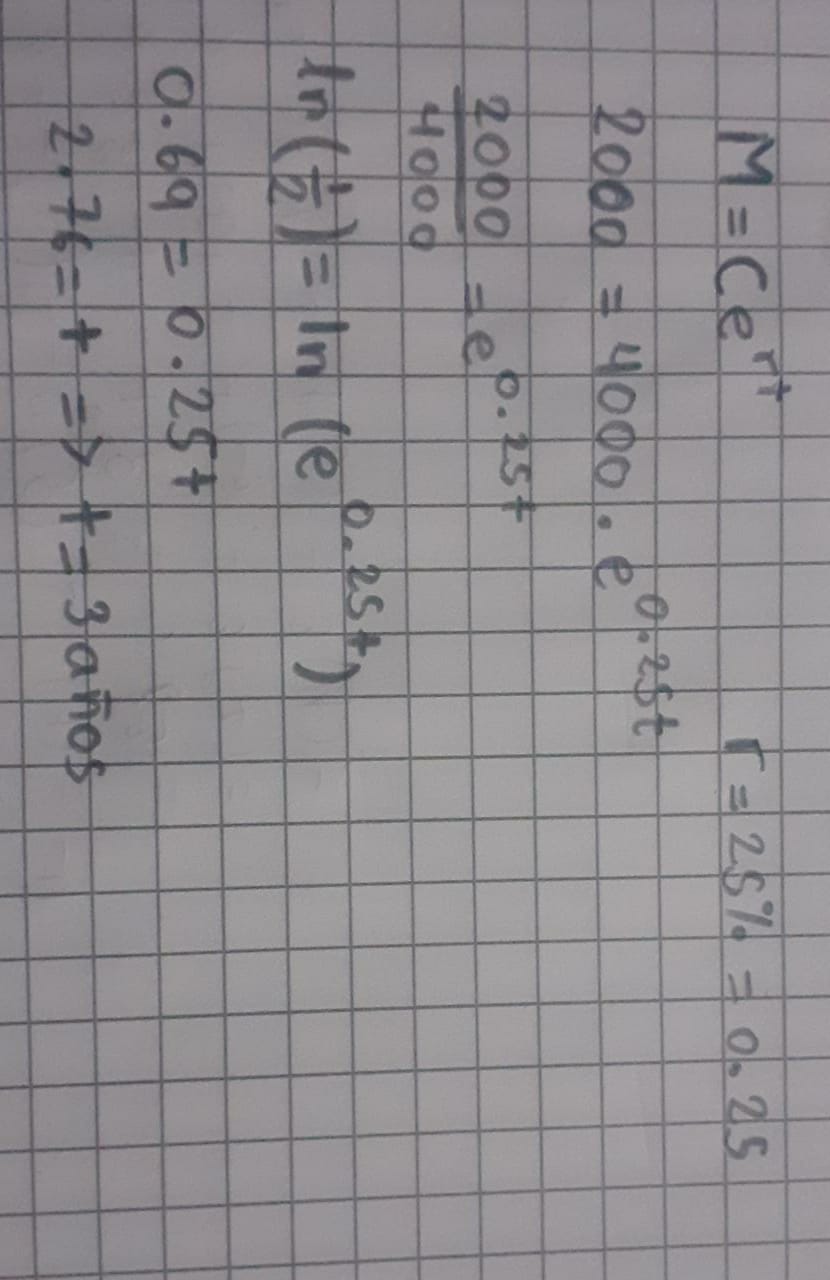 M = Ce^rt r = 25% = 0.25
2000 = 4000 · e^0.25t
2000/4000 = e^0.25t
ln(1/2) = ln (e^0.25t)
0.69 = 0.25t
2.76 = t => t = 3 años